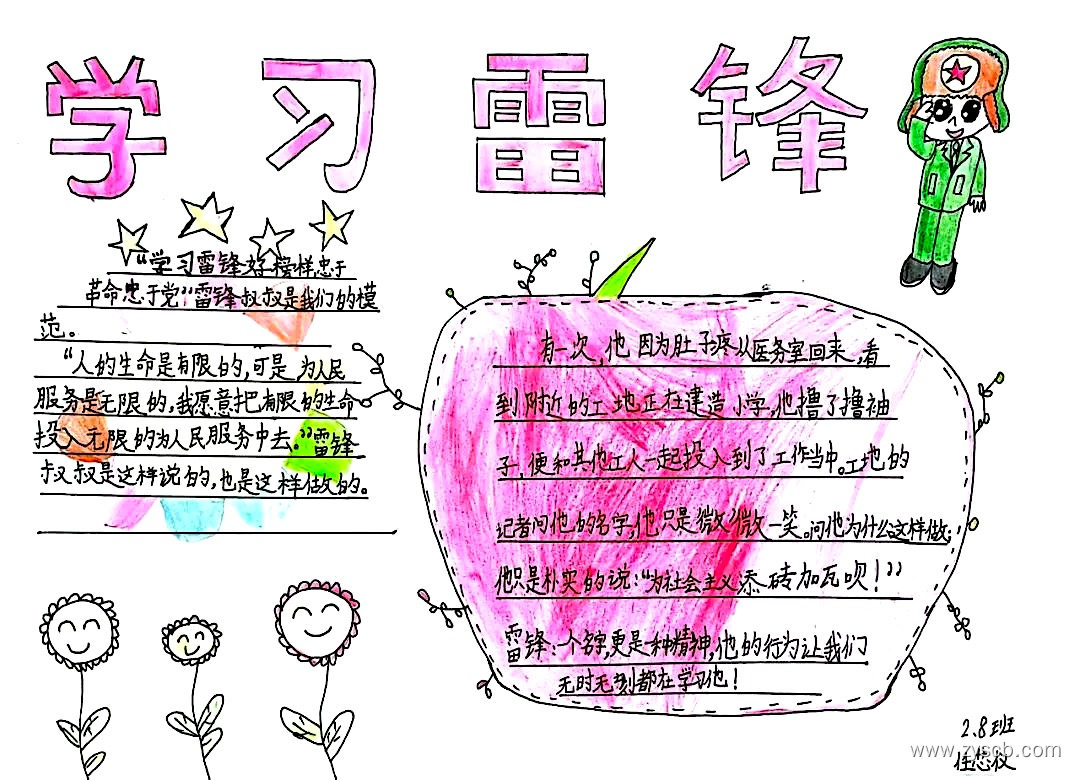 学习雷锋
"学习雷锋好榜样忠于
革命忠于党"雷锋叔叔是我们的模
范。
"人的生命是有限的,可是为人民
服务是无限的,我愿意把有限的生命
投入无限的为人民服务中去。"雷锋
叔叔是这样说的,也是这样做的。
有一次,他因为肚子疼从医务室回来,看
到附近的工地正在建造小学,他撸了撸袖
子,便和其他工人一起投入到了工作当中。工地的
记者问他的名字,他只是微微一笑。问他为什么这样做,
他只是朴实的说:"为社会主义添砖加瓦呗!"
雷锋:一个名字,更是一种精神,他的行为让我们
无时无刻都在学习他!
2.8班
www.zyscb.com